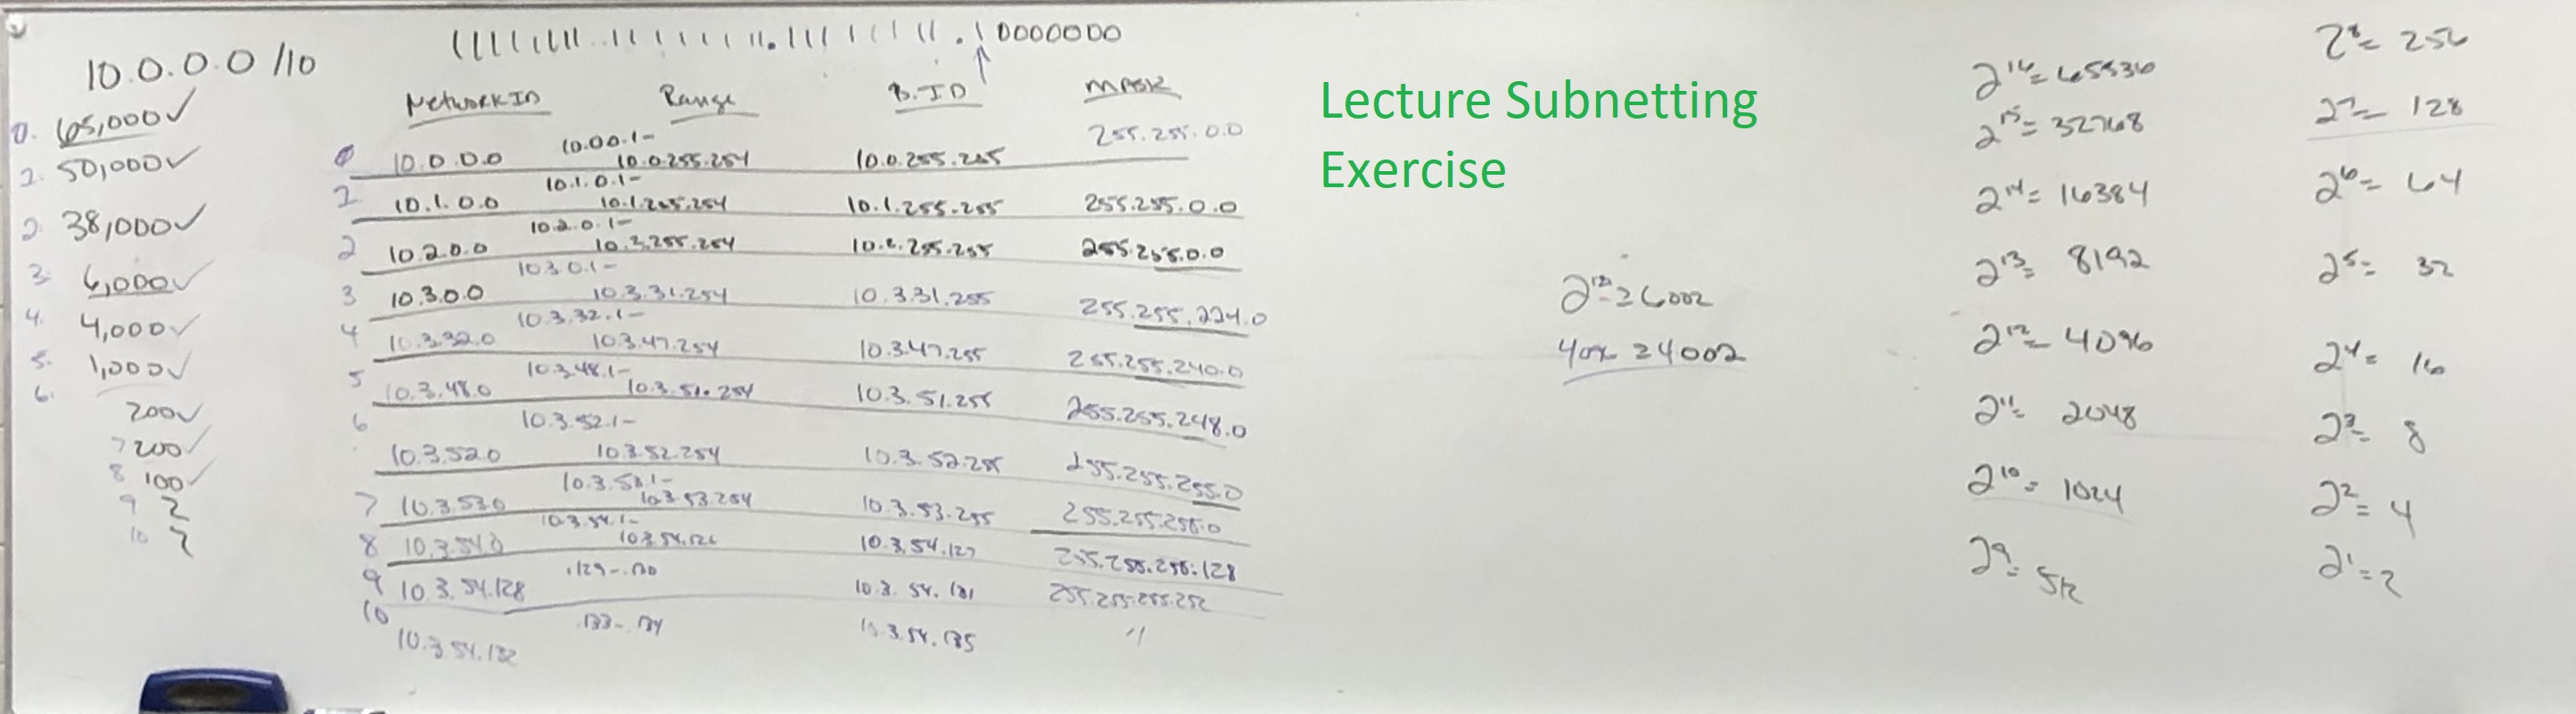 10.0.0.0 /10
11111111.11111111.11111111.10000000
0. 65,000✓
2. 50,000✓
2. 38,000✓
3. 6,000✓
4. 4,000✓
5. 1,000✓
6. 200✓
7 200✓
8 100✓
9 2
10 2
Network ID Range B.ID MASK
0 10.0.0.0 10.0.0.1- 10.0.255.254 10.0.255.255 255.255.0.0
1 10.1.0.0 10.1.0.1- 10.1.255.254 10.1.255.255 255.255.0.0
2 10.2.0.0 10.2.0.1- 10.2.255.254 10.2.255.255 255.255.0.0
3 10.3.0.0 10.3.0.1- 10.3.31.254 10.3.31.255 255.255.224.0
4 10.3.32.0 10.3.32.1- 10.3.47.254 10.3.47.255 255.255.240.0
5 10.3.48.0 10.3.48.1- 10.3.51.254 10.3.51.255 255.255.248.0
6 10.3.52.0 10.3.52.1- 10.3.52.254 10.3.52.255 255.255.255.0
7 10.3.53.0 10.3.53.1- 10.3.53.254 10.3.53.255 255.255.255.0
8 10.3.54.0 10.3.54.1- 10.3.54.126 10.3.54.127 255.255.255.128
9 10.3.54.128 .129-.130 10.3.54.131 255.255.255.252
10 10.3.54.132 .133-.134 10.3.54.135 "
Lecture Subnetting
Exercise
≥6002
≥4002
2¹⁶= 65536
2¹⁵= 32768
2¹⁴= 16384
2¹³= 8192
2¹²= 4096
2¹¹= 2048
2¹⁰= 1024
2⁹= 512
2⁸= 256
2⁷= 128
2⁶= 64
2⁵= 32
2⁴= 16
2³= 8
2²= 4
2¹= 2